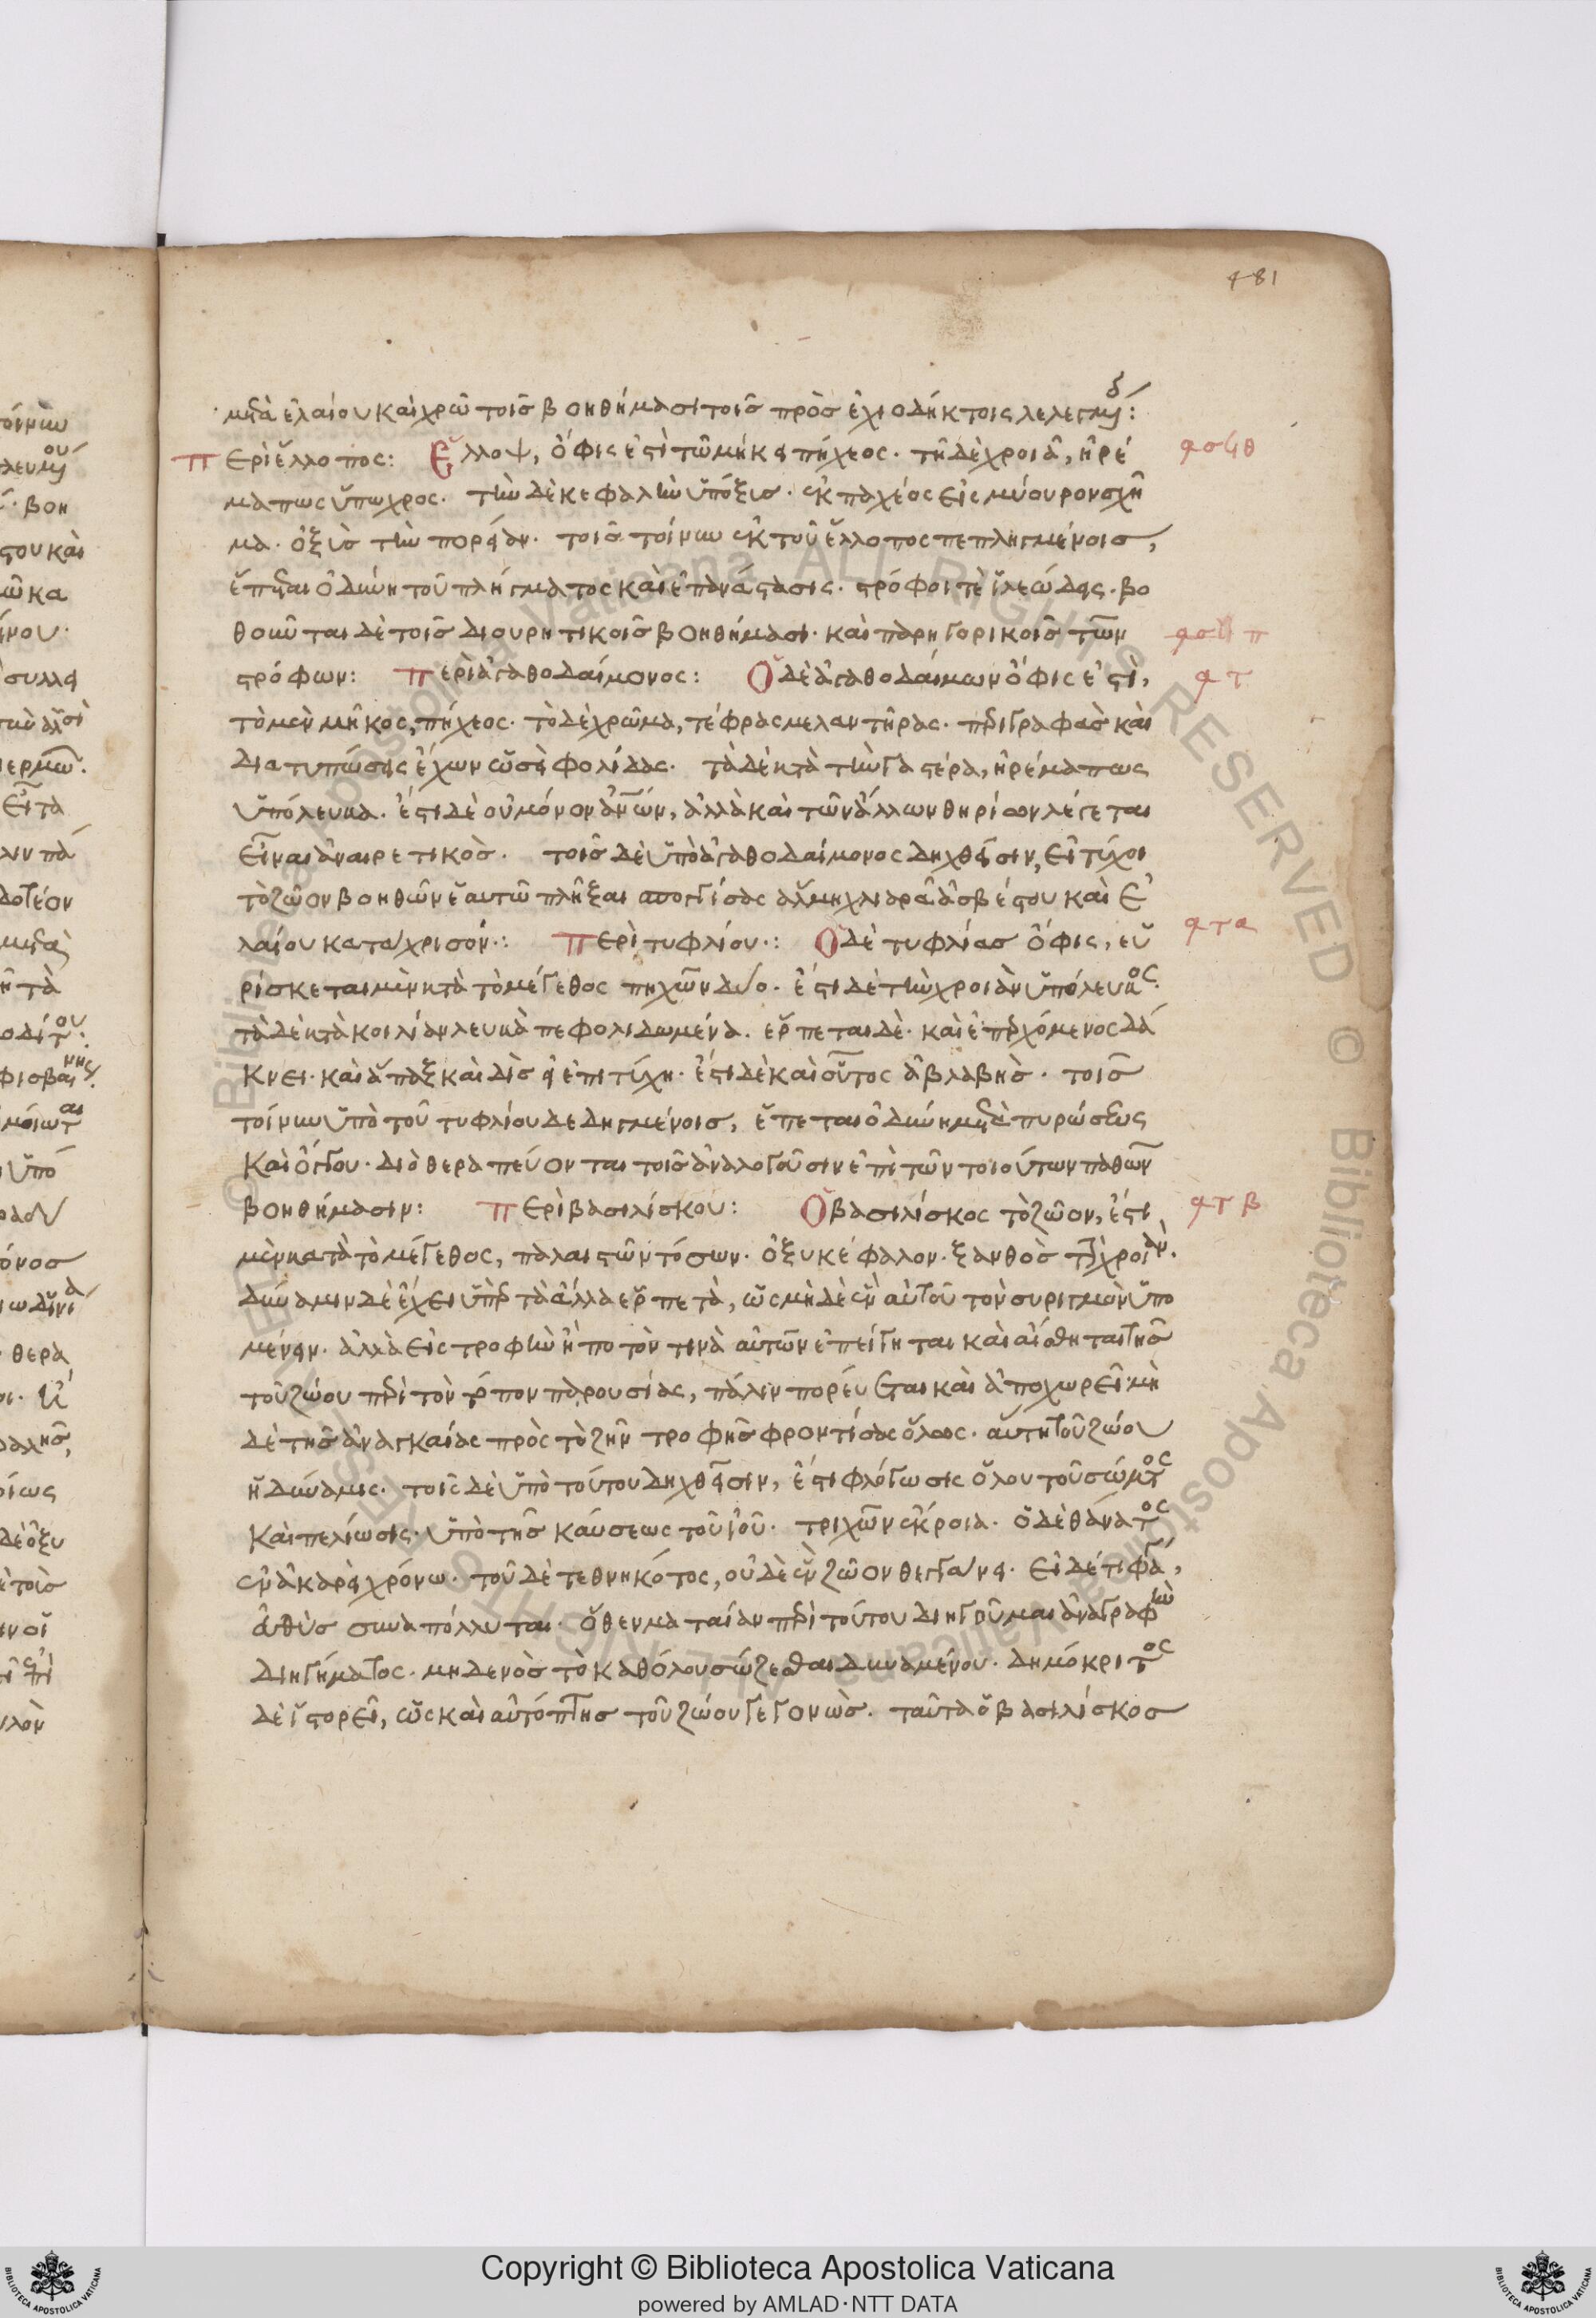 481
μετὰ ἐλαίου καὶ χρῶ τοῖς βοηθήμασι τοῖς πρὸς ἐχιοδήκτοις λελεγμένοις:
Περὶ ἔλλοπος: Ἔλλοψ, ὄφις ἐστὶ τῶ μήκει πήχεος· τῆ δὲ χροιᾶ, ἠρέ
μα πως ὕπωχρος· τὴν δὲ κεφαλὴν ὕποξυς· ἐκ παχέος εἰς μύουρον σχῆ
μα· ὀξὺς τὴν πορείαν· τοῖς τοίνυν ἐκ τοῦ ἔλλοπος πεπληγμένοις,
ἕπεται ὀδύνη τοῦ πλήγματος καὶ ἐπανάστασις· στρόφοι τὲ εἰλεώδεις· βο
θοῦνται δὲ τοῖς διουρητικοῖς βοηθήμασι· καὶ παρηγορικοῖς τῶν
στρόφων: Περὶ ἀγαθοδαίμονος: Ὁ δὲ ἀγαθοδαίμων ὄφις ἐστὶ,
τὸ μὲν μῆκος, πήχεος· τὸ δὲ χρῶμα, τέφρας μελαντῆρας· περιγραφὰς καὶ
διατυπώσεις ἔχων ὡσεὶ φολίδας· τὰ δὲ κατὰ τὴν γαστέρα, ἠρέμα πως
ὑπόλευκα· ἔστι δὲ οὐ μόνον ἀνθρώπων, ἀλλὰ καὶ τῶν ἄλλων θηρίων λέγεται
εἶναι ἀναιρετικός· τοῖς δὲ ὑπὸ ἀγαθοδαίμονος δηχθεῖσιν, εἰ τύχοι
τὸ ζῶον βοηθῶν ἑαυτῶ πλῆξαι ἀποσπογγίσας ἅλμη χλιαρᾶ ἀσβέστου καὶ ἐ
λαίου κατάχρισον: Περὶ τυφλίου: Ὁ δὲ τυφλίας ὄφις, εὑ
ρίσκεται μὲν κατὰ τὸ μέγεθος πηχῶν δύο· ἔστι δὲ τὴν χροιὰν ὑπόλευκος·
τὰ δὲ κατὰ κοιλίαν λευκὰ πεφολιδωμένα· ἕρπεται δὲ· καὶ ἐπερχόμενος δά
κνει· καὶ ἅπαξ καὶ δὶς εἰ ἐπιτύχη· ἔστι δὲ καὶ οὗτος ἀβλαβὴς· τοῖς
τοίνυν ὑπὸ τοῦ τυφλίου δεδηγμένοις, ἕπεται ὀδύνη μετὰ πυρώσεως
καὶ ὄγκου· διὸ θεραπεύονται τοῖς ἀναλογοῦσιν ἐπὶ τῶν τοιούτων παθῶν
βοηθήμασιν: Περὶ βασιλίσκου: Ὁ βασιλίσκος τὸ ζῶον, ἐστὶ
μὲν κατὰ τὸ μέγεθος, παλαιστῶν τόσων· ὀξυκέφαλον· ξανθὸς τὴν χροιάν·
δύναμιν δὲ ἔχει ὑπὲρ τὰ ἄλλα ἑρπετὰ, ὡς μὴ δὲ ἓν αὐτοῦ τὸν συριγμὸν ὑπο
μένειν· ἀλλὰ εἰς τροφὴν ἢ ποτὸν τινὰ αὐτῶν ἐπείγηται καὶ αἴσθηται τῆς
τοῦ ζώου περὶ τὸν τρόπον παρουσίας, πάλιν πορεύεται καὶ ἀποχωρεῖ· μὴ
δὲ τῆς ἀναγκαίας πρὸς τὸ ζῆν τροφῆς φροντίσας ὅλως· αὕτη τοῦ ζώου
ἡ δύναμις· τοῖς δὲ ὑπὸ τούτου δηχθεῖσιν, ἔστι φλόγωσις ὅλου τοῦ σώματος
καὶ πελίωσις· ὑπὸ τῆς καύσεως τοῦ ἰοῦ· τριχῶν ἔκρσια· ὁ δὲ θάνατος
ἐν ἀκαρεῖ χρόνω· τοῦ δὲ τεθνηκότος, οὐδὲ ἓν ζῶον θιγγάνει· εἰ δέ τι φάγη,
αὐθὺς συναπόλλυται· ὅθεν ματαίαν περὶ τούτου διηγοῦμαι ἀναγραφὴν
διηγήματος· μηδενὸς τὸ καθόλου σώζεσθαι δυναμένου· δημόκριτος
δὲ ἱστορεῖ, ὡς καὶ αὐτόπτης τοῦ ζώου γεγονὼς· ταῦτα ὁ βασιλίσκος
φσϟθ
φτ
φτα
φτβ
Copyright © Biblioteca Apostolica Vaticana
powered by AMLAD·NTT DATA